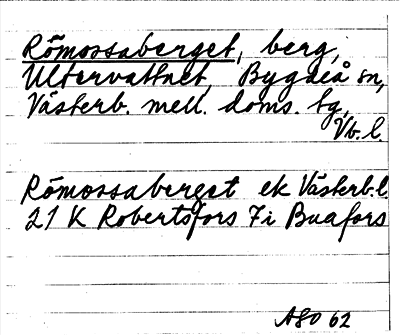 Römossaberget, berg,
Ultervattnet, Bygdeå sn,
Västerb. mell. doms. tg,
Vb. l.
Römossaberget ek Västerb. l.
21 K Robertsfors 7i Buafors
ASO 62